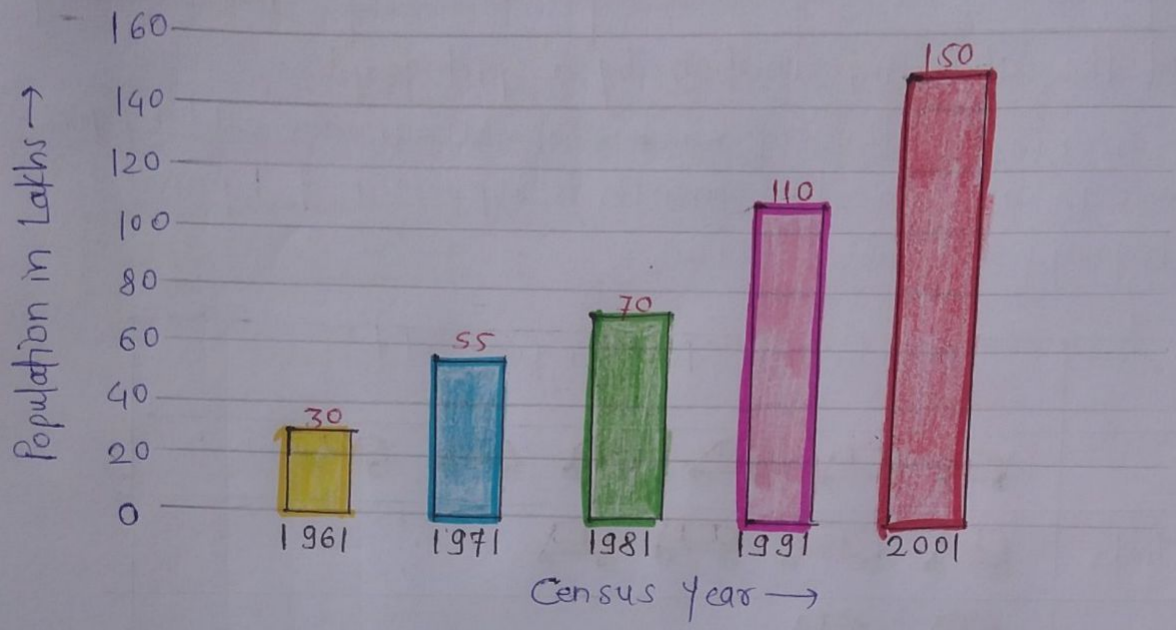 Population in Lakhs →
160
140
120
100
80
60
40
20
0
30
55
70
110
150
1961 1971 1981 1991 2001
Census Year →